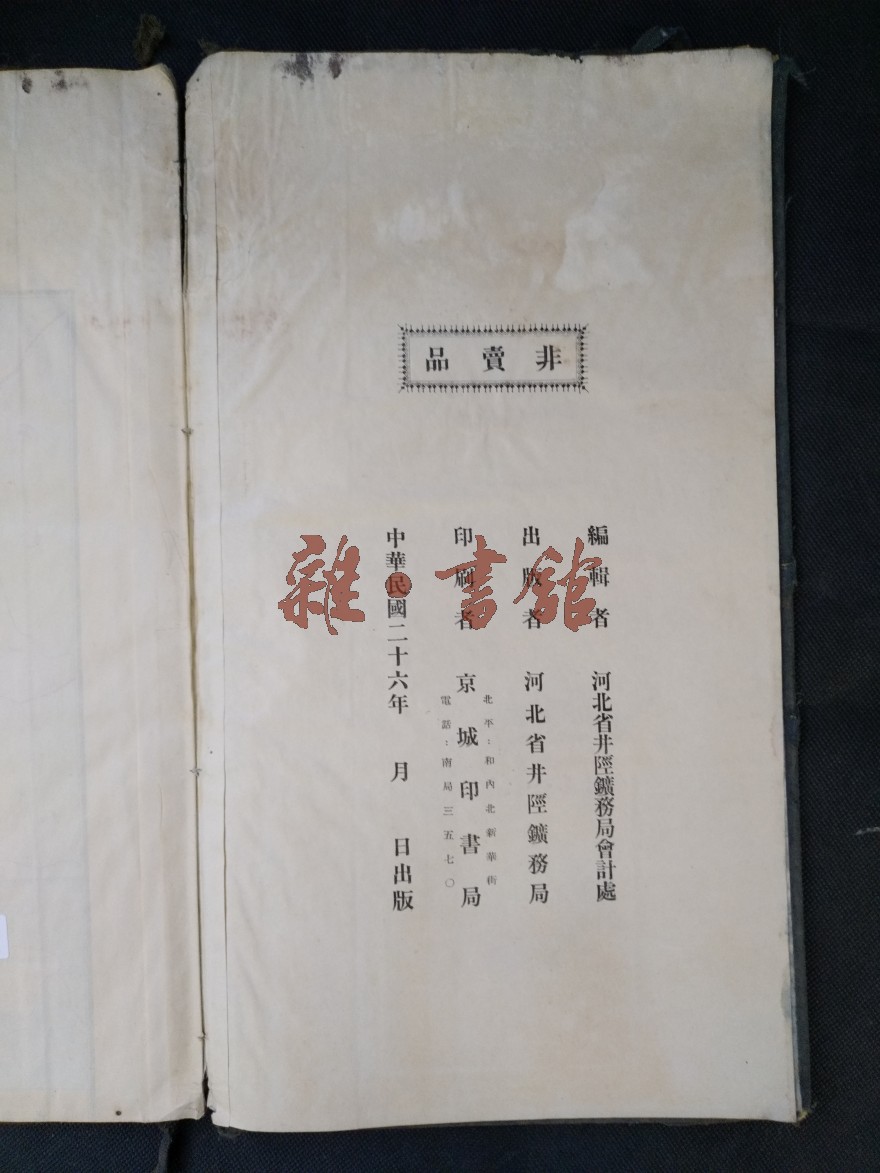 非賣品
編輯者 河北省井陘鑛務局會計處
出版者 河北省井陘鑛務局
印刷者 京城印書局
北平：和內北新華街
電話：南局三五七〇
中華民國二十六年 月 日出版
雜·書館